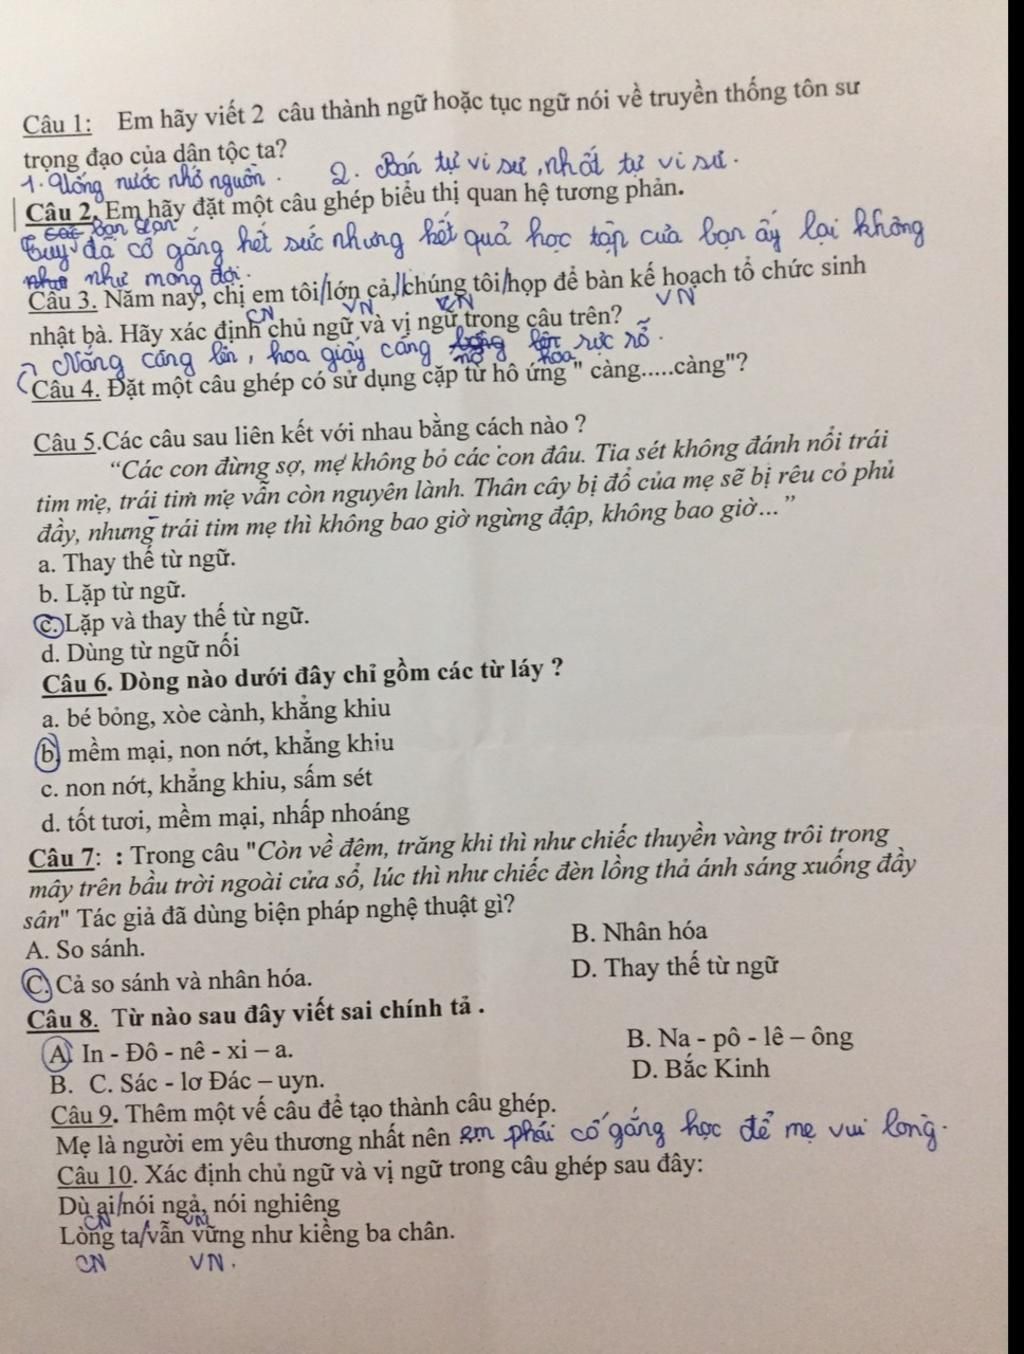 Câu 1: Em hãy viết 2 câu thành ngữ hoặc tục ngữ nói về truyền thống tôn sư
trọng đạo của dân tộc ta?
1. Uống nước nhớ nguồn. 2. Bán tự vi sư, nhất tự vi sư.
Câu 2. Em hãy đặt một câu ghép biểu thị quan hệ tương phản.
bạn Lan
Tuy đã cố gắng hết sức nhưng kết quả học tập của bạn ấy lại không
như mong đợi.
Câu 3. Năm nay, chị em tôi/lớn cả,/chúng tôi/họp để bàn kế hoạch tổ chức sinh
CN VN CN VN
nhật bà. Hãy xác định chủ ngữ và vị ngữ trong câu trên?
Nắng càng lên, hoa giấy càng nở hoa rực rỡ.
Câu 4. Đặt một câu ghép có sử dụng cặp từ hô ứng " càng.....càng"?
Câu 5.Các câu sau liên kết với nhau bằng cách nào ?
“Các con đừng sợ, mẹ không bỏ các con đâu. Tia sét không đánh nổi trái
tim mẹ, trái tim mẹ vẫn còn nguyên lành. Thân cây bị đổ của mẹ sẽ bị rêu cỏ phủ
đầy, nhưng trái tim mẹ thì không bao giờ ngừng đập, không bao giờ…”
a. Thay thế từ ngữ.
b. Lặp từ ngữ.
c. Lặp và thay thế từ ngữ.
d. Dùng từ ngữ nối
Câu 6. Dòng nào dưới đây chỉ gồm các từ láy ?
a. bé bỏng, xòe cành, khẳng khiu
b. mềm mại, non nớt, khẳng khiu
c. non nớt, khẳng khiu, sấm sét
d. tốt tươi, mềm mại, nhấp nhoáng
Câu 7: : Trong câu "Còn về đêm, trăng khi thì như chiếc thuyền vàng trôi trong
mây trên bầu trời ngoài cửa sổ, lúc thì như chiếc đèn lồng thả ánh sáng xuống đầy
sân" Tác giả đã dùng biện pháp nghệ thuật gì?
A. So sánh. B. Nhân hóa
C. Cả so sánh và nhân hóa. D. Thay thế từ ngữ
Câu 8. Từ nào sau đây viết sai chính tả .
A. In - Đô - nê - xi – a. B. Na - pô - lê – ông
B. C. Sác - lơ Đác – uyn. D. Bắc Kinh
Câu 9. Thêm một vế câu để tạo thành câu ghép.
Mẹ là người em yêu thương nhất nên em phải cố gắng học để mẹ vui lòng.
Câu 10. Xác định chủ ngữ và vị ngữ trong câu ghép sau đây:
Dù ai/nói ngả, nói nghiêng
CN VN
Lòng ta/vẫn vững như kiềng ba chân.
CN VN.